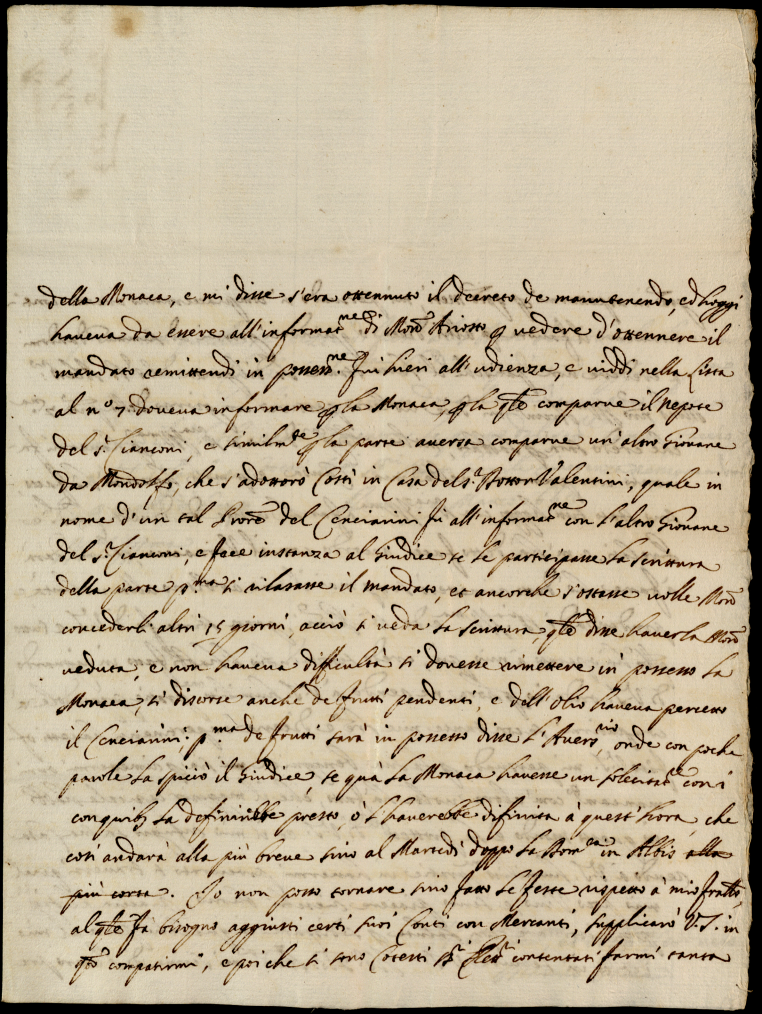 della Monaca, e mi disse s'era ottennuto il decreto de manutenendo, ed hoggi
haveva da essere all'informat.ne di Mons.r Ariosto p vedere d'ottennere il
mandato remittendi in possess.ne. Fui hieri all'udienza, e viddi nella Lista
al n.o 7 doveva informare p la Monaca, p la qle comparve il Nepote
del s.r Cianconi, e similm.te p la parte aversa comparve un'altro Giovane
da Mondolfo, che s'adottorò Costì in Casa del s.r Dottor Valentini, quale in
nome d'un tal Proc.re del Cenciarini fù all'informat.ne con l'altro Giovane
del s.r Cianconi, e fece instanza al Giudice se le participasse la scrittura
della parte p.ma si rilasasse il mandato, et ancorche s'ostasse volle Mons.r
concederli altri 15 giorni, acciò si veda la scrittura, qle disse haverla Mons.r
veduta, e non haveva difficultà si dovesse rimettere in possesso la
Monaca, si discorse anche de frutti pendenti, e dell'olio haveva percetto
il Cenciarini: p.ma de frutti sarà in possesso disse l'Avers.rio, onde con poche
parole la spicciò il Giudice, se quà la Monaca havesse un solecitat.re con i
conquib9 la definirebbe presto, ò l'haverebbe difinita à quest'hora, che
così andarà alla più breve sino al Martedì doppo la Dom.ca in Albis alla
più corta. Io non posso tornare sino fatto le feste rispetto à mio frat.llo,
al qle fà bisogno aggiusti certi suoi Conti con Mercanti, supplicarò V.S. in
qto compatirmi, e poi che si sono Cotesti SS.ri contentati farmi tanta